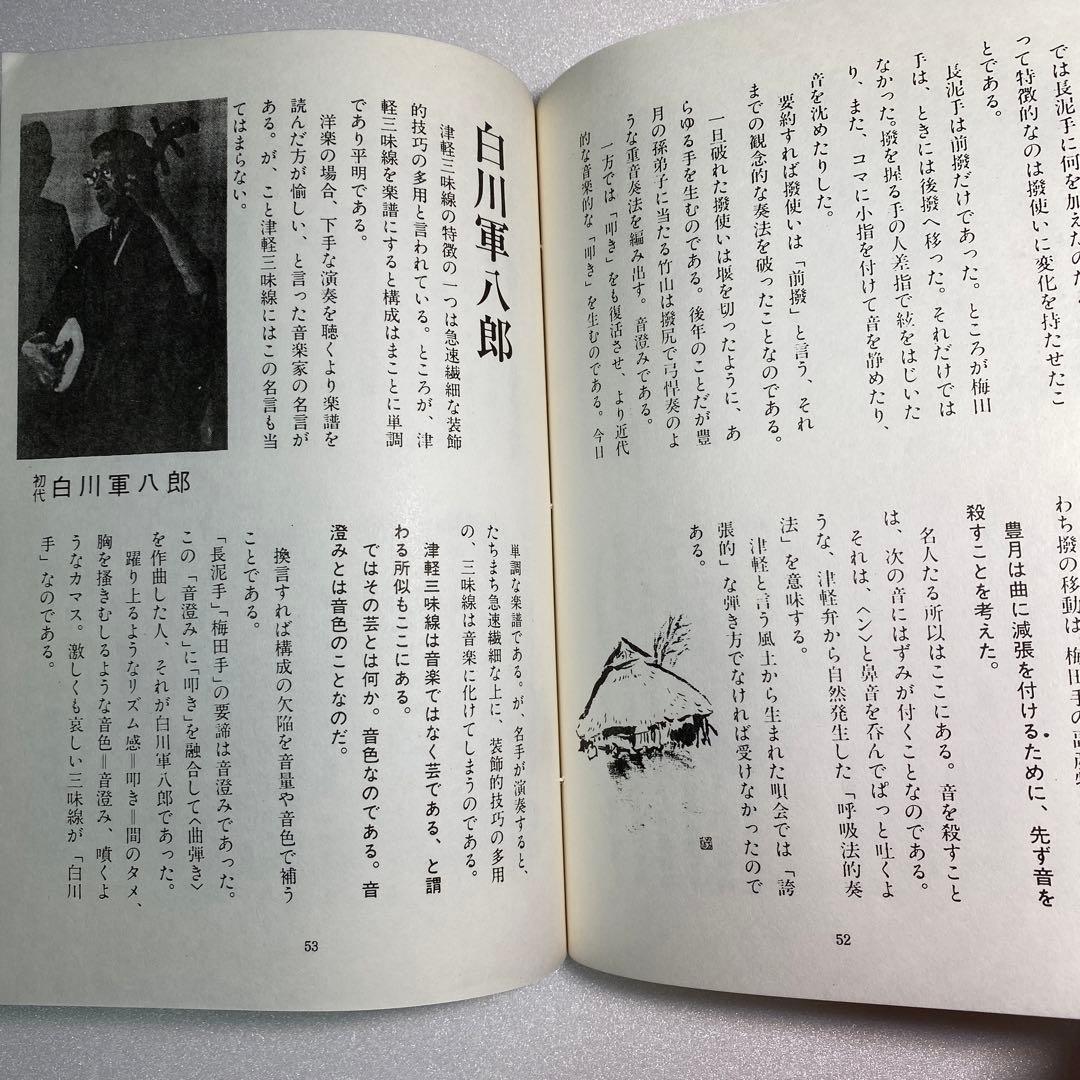 では長泥手に何を加えたの
って特徴的なのは撥使いに変化を持たせたこ
とである。
長泥手は前撥だけであった。ところが梅田
手は、ときには後撥へ移った。それだけでは
なかった。撥を握る手の人差指で絃をはじいた
り、また、コマに小指を付けて音を静めたり、
音を沈めたりした。
要約すれば撥使いは「前撥」と言う、それ
までの観念的な奏法を破ったことなのである。
一旦破れた撥使いは堰を切ったように、あ
らゆる手を生むのである。後年のことだが豊
月の孫弟子に当たる竹山は撥尻で弓悍奏のよ
うな重音奏法を編み出す。音澄みである。
一方では「叩き」をも復活させ、より近代
的な音楽的な「叩き」を生むのである。今日
わち撥の移動は、梅田手の
豊月は曲に減張を付けるために、先ず音を
殺すことを考えた。
名人たる所以はここにある。音を殺すこと
は、次の音にはずみが付くことなのである。
それは、〈ン〉と鼻音を呑んでぱっと吐くよ
うな、津軽弁から自然発生した「呼吸法的奏
法」を意味する。
津軽と言う風土から生まれた唄会では「誇
張的」な弾き方でなければ受けなかったので
ある。
52
白川軍八郎
津軽三味線の特徴の一つは急速繊細な装飾
的技巧の多用と言われている。ところが、津
軽三味線を楽譜にすると構成はまことに単調
であり平明である。
洋楽の場合、下手な演奏を聴くより楽譜を
読んだ方が愉しい、と言った音楽家の名言が
ある。が、こと津軽三味線にはこの名言も当
てはまらない。
初代 白川軍八郎
単調な楽譜である。が、名手が演奏すると、
たちまち急速繊細な上に、装飾的技巧の多用
の、三味線は音楽に化けてしまうのである。
津軽三味線は音楽ではなく芸である、と謂
わる所似もここにある。
ではその芸とは何か。音色なのである。音
澄みとは音色のことなのだ。
換言すれば構成の欠陥を音量や音色で補う
ことである。
「長泥手」「梅田手」の要諦は音澄みであった。
この「音澄み」に「叩き」を融合して〈曲弾き〉
を作曲した人、それが白川軍八郎であった。
躍り上るようなリズム感＝叩き＝間のタメ、
胸を掻きむしるような音色＝音澄み、噴くよ
うなカマス。激しくも哀しい三味線が「白川
手」なのである。
53